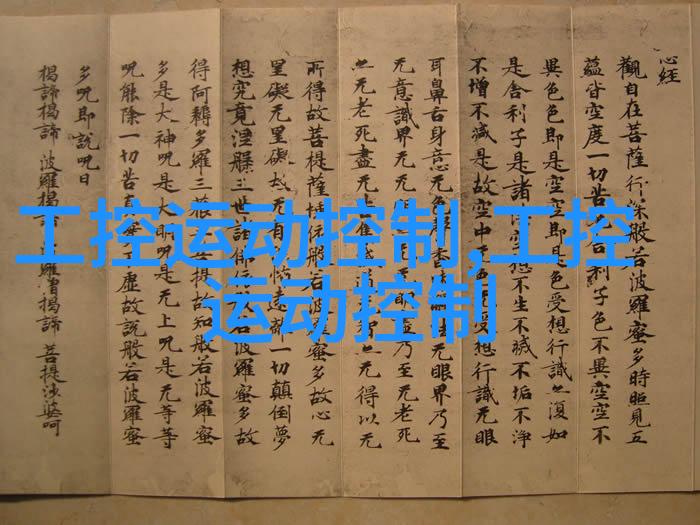 心经
觀自在菩薩行深般若波羅蜜多時照見五
蘊皆空度一切苦利子色不異空空不
異色色即是空空即是色受想行識亦復如
是舍利子是諸不生不滅不垢不淨
不增不減是故空中受想行識无眼
耳鼻舌身意无色香法无眼界乃至
无意識界无无乃至无老死
亦无老死盡无亦无得以无
所得故菩提薩依般若波羅蜜多故心无
罣礙无罣礙故无有一切顛倒夢
想究竟涅槃三世諸佛若波羅蜜多故
得阿耨多羅三藐提故知般若波羅蜜
多是大神呪是大明呪是无上呪是无等等
呪能除一切苦真不虛故說般若波羅蜜
多呪即說呪曰
揭諦揭諦 波羅揭 羅僧揭諦 菩提娑婆呵
工控运动控制,工控
运动控制